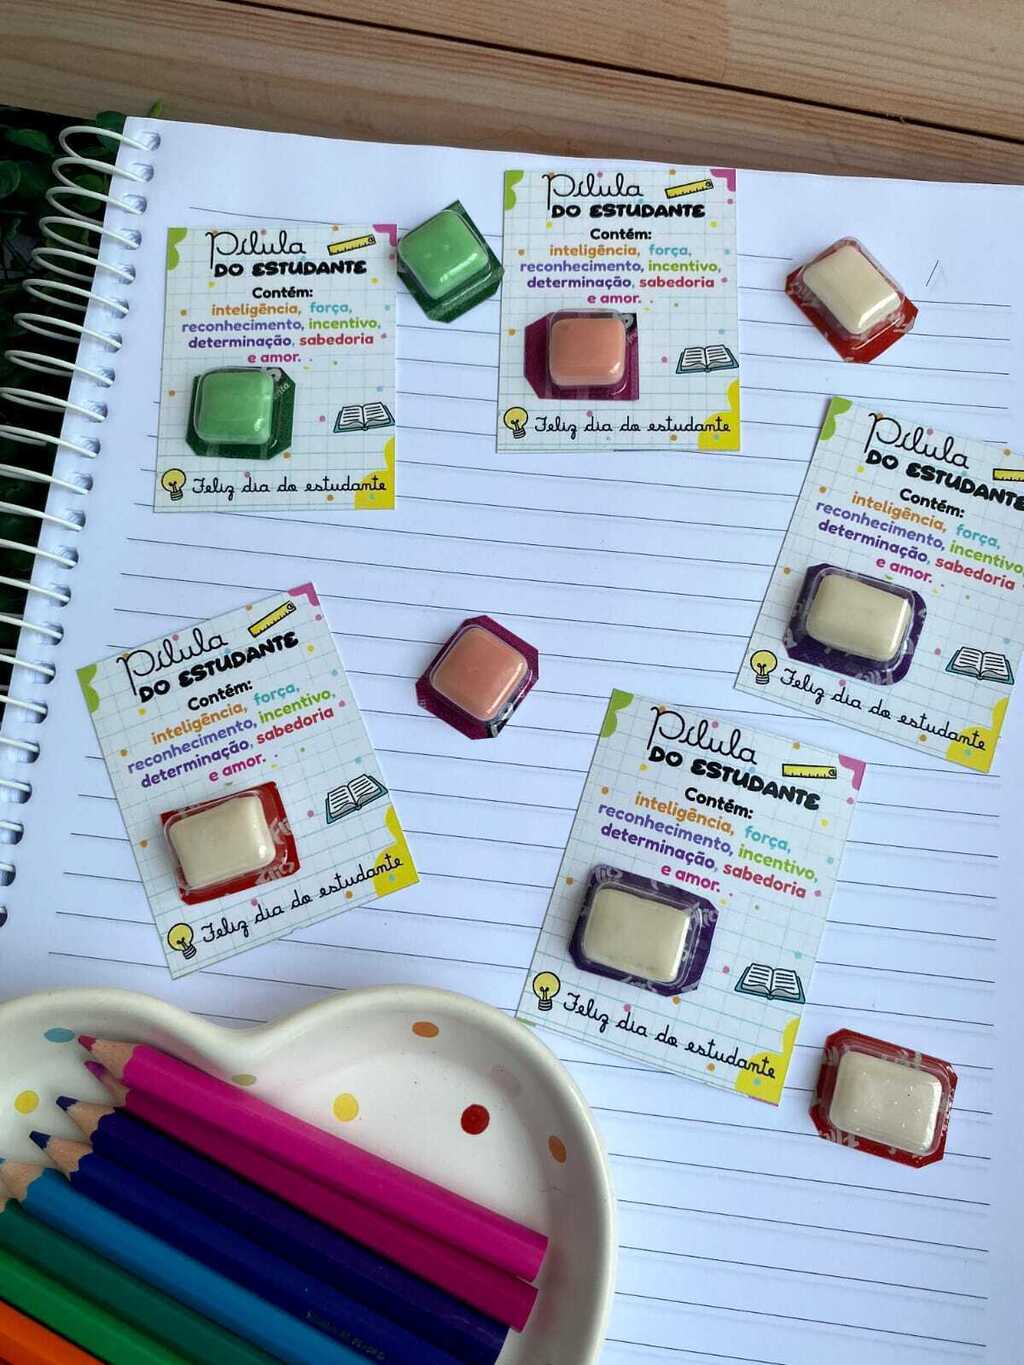 Pílula
DO ESTUDANTE
Contém:
inteligência, força,
reconhecimento, incentivo,
determinação, sabedoria
e amor.
Feliz dia do estudante
Pílula
DO ESTUDANTE
Contém:
inteligência, força,
reconhecimento, incentivo,
determinação, sabedoria
e amor.
Feliz dia do estudante
Pílula
DO ESTUDANTE
Contém:
inteligência, força,
reconhecimento, incentivo,
determinação, sabedoria
e amor.
Feliz dia do estudante
Pílula
DO ESTUDANTE
Contém:
inteligência, força,
reconhecimento, incentivo,
determinação, sabedoria
e amor.
Feliz dia do estudante
Pílula
DO ESTUDANTE
Contém:
inteligência, força,
reconhecimento, incentivo,
determinação, sabedoria
e amor.
Feliz dia do estudante